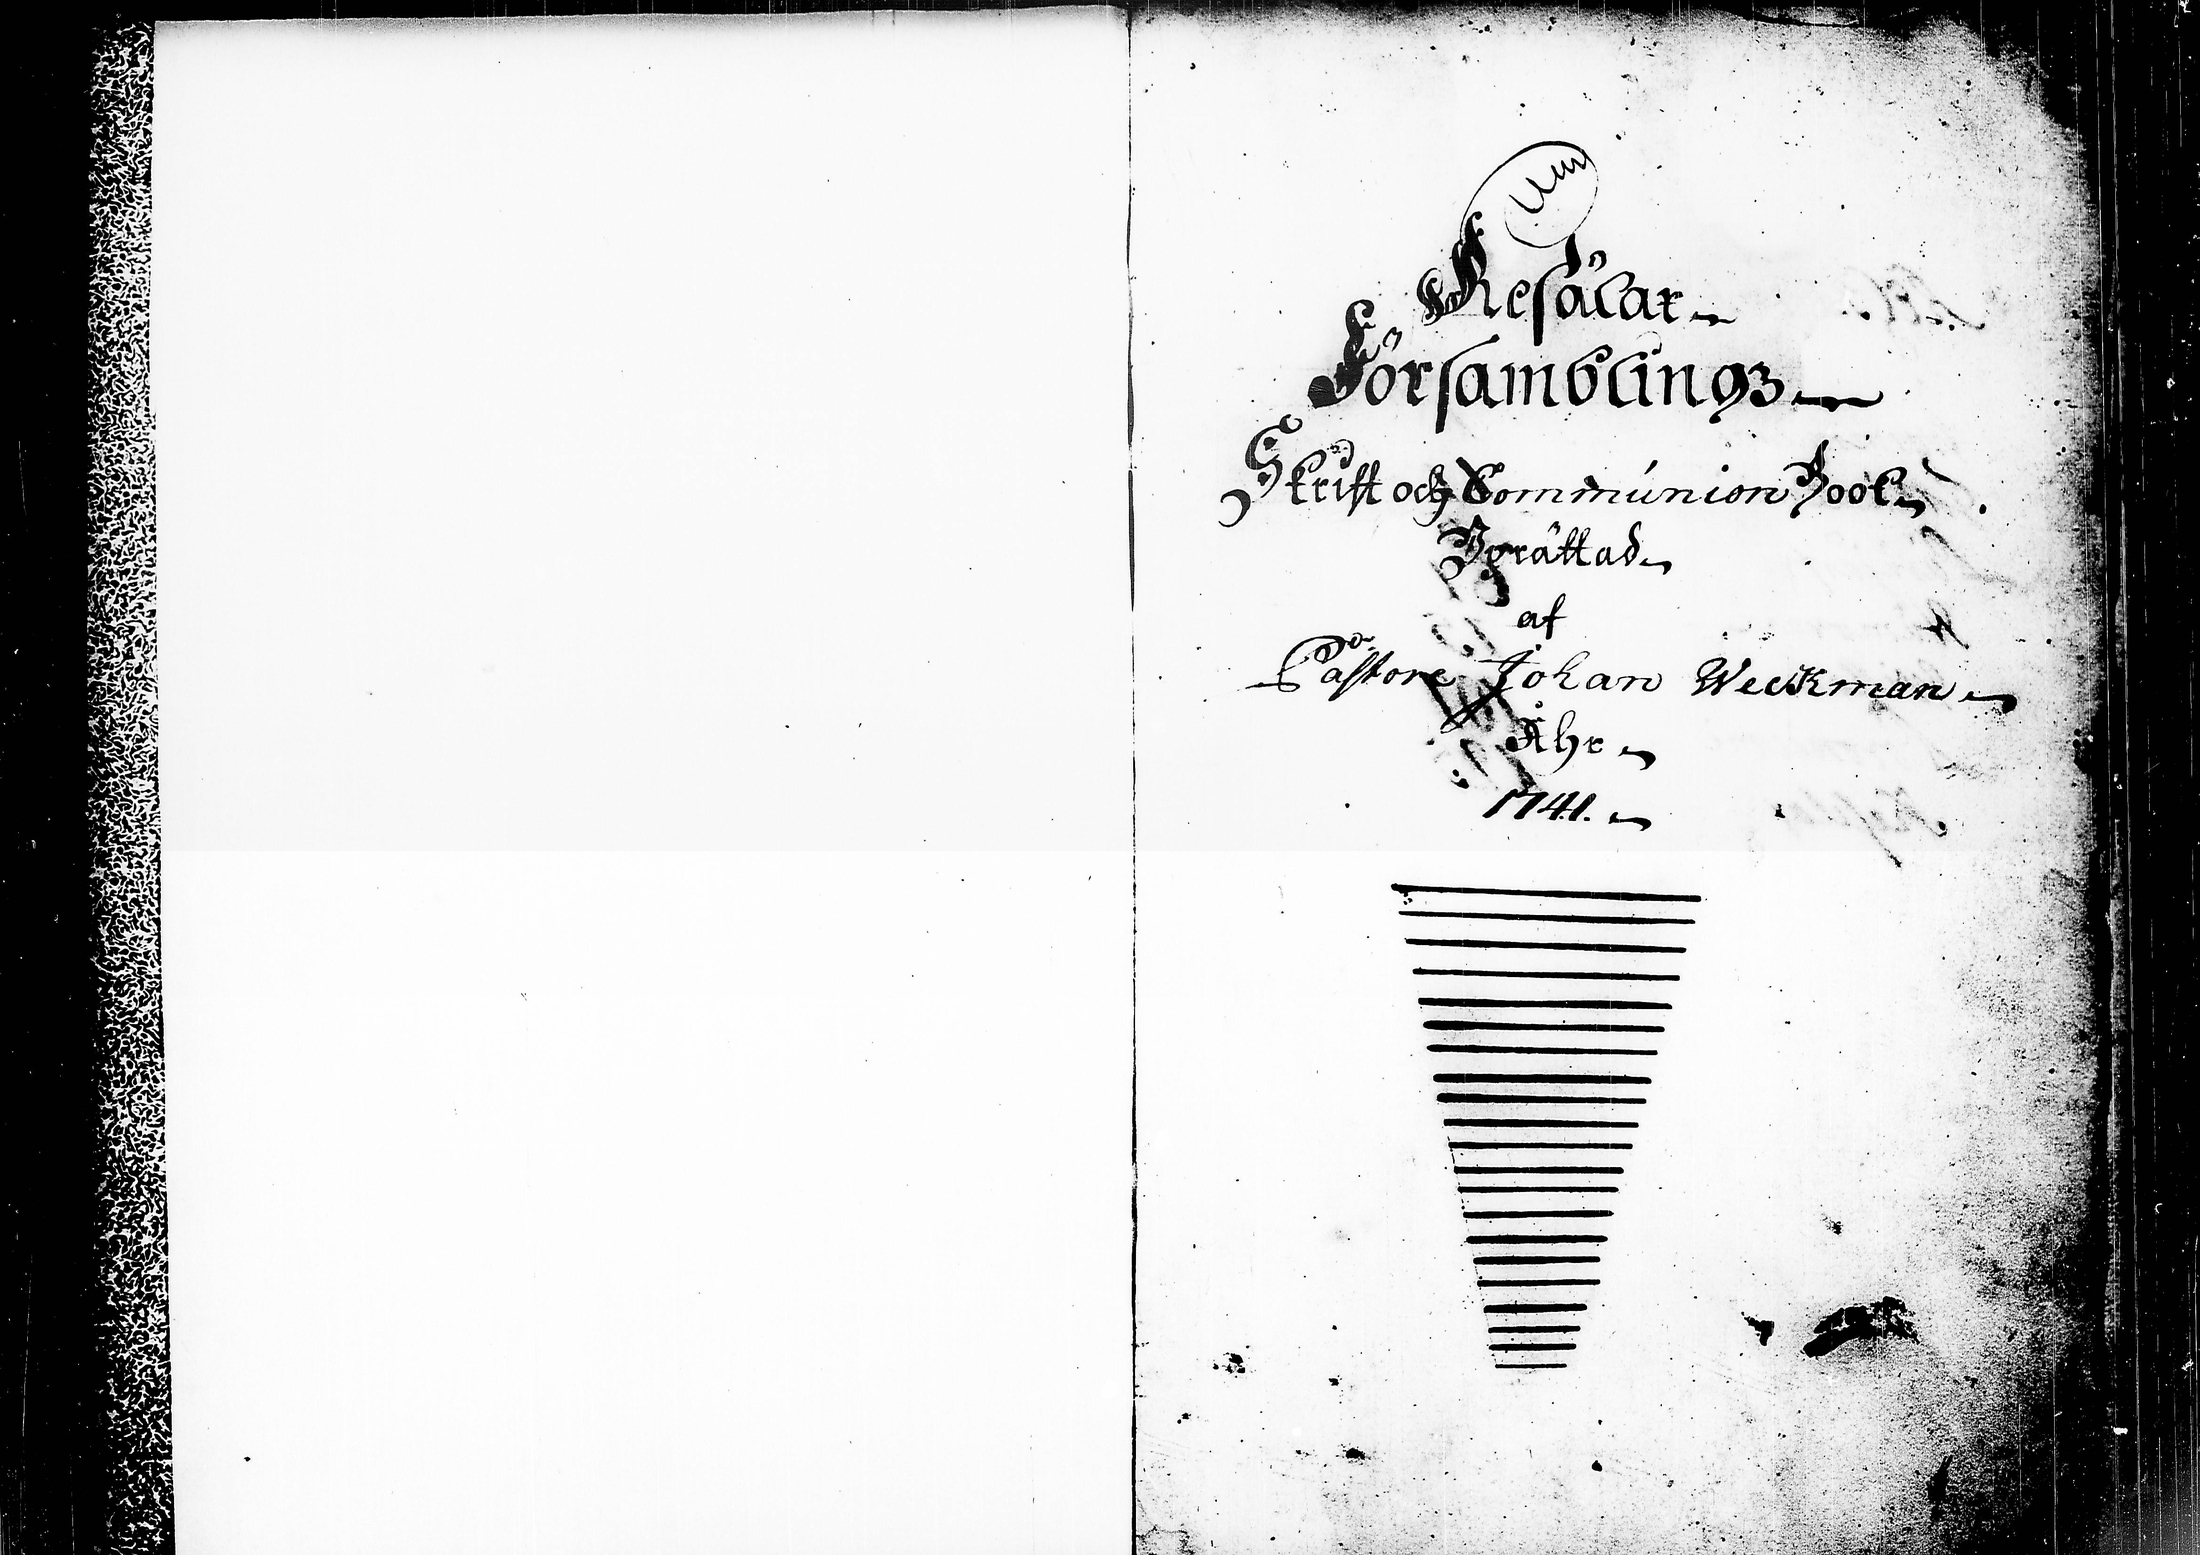 Kesälax
Församblingz
Skrift och Communion Book
Vprättad
af
Pastore Johan Weckman
Åhr
1741.